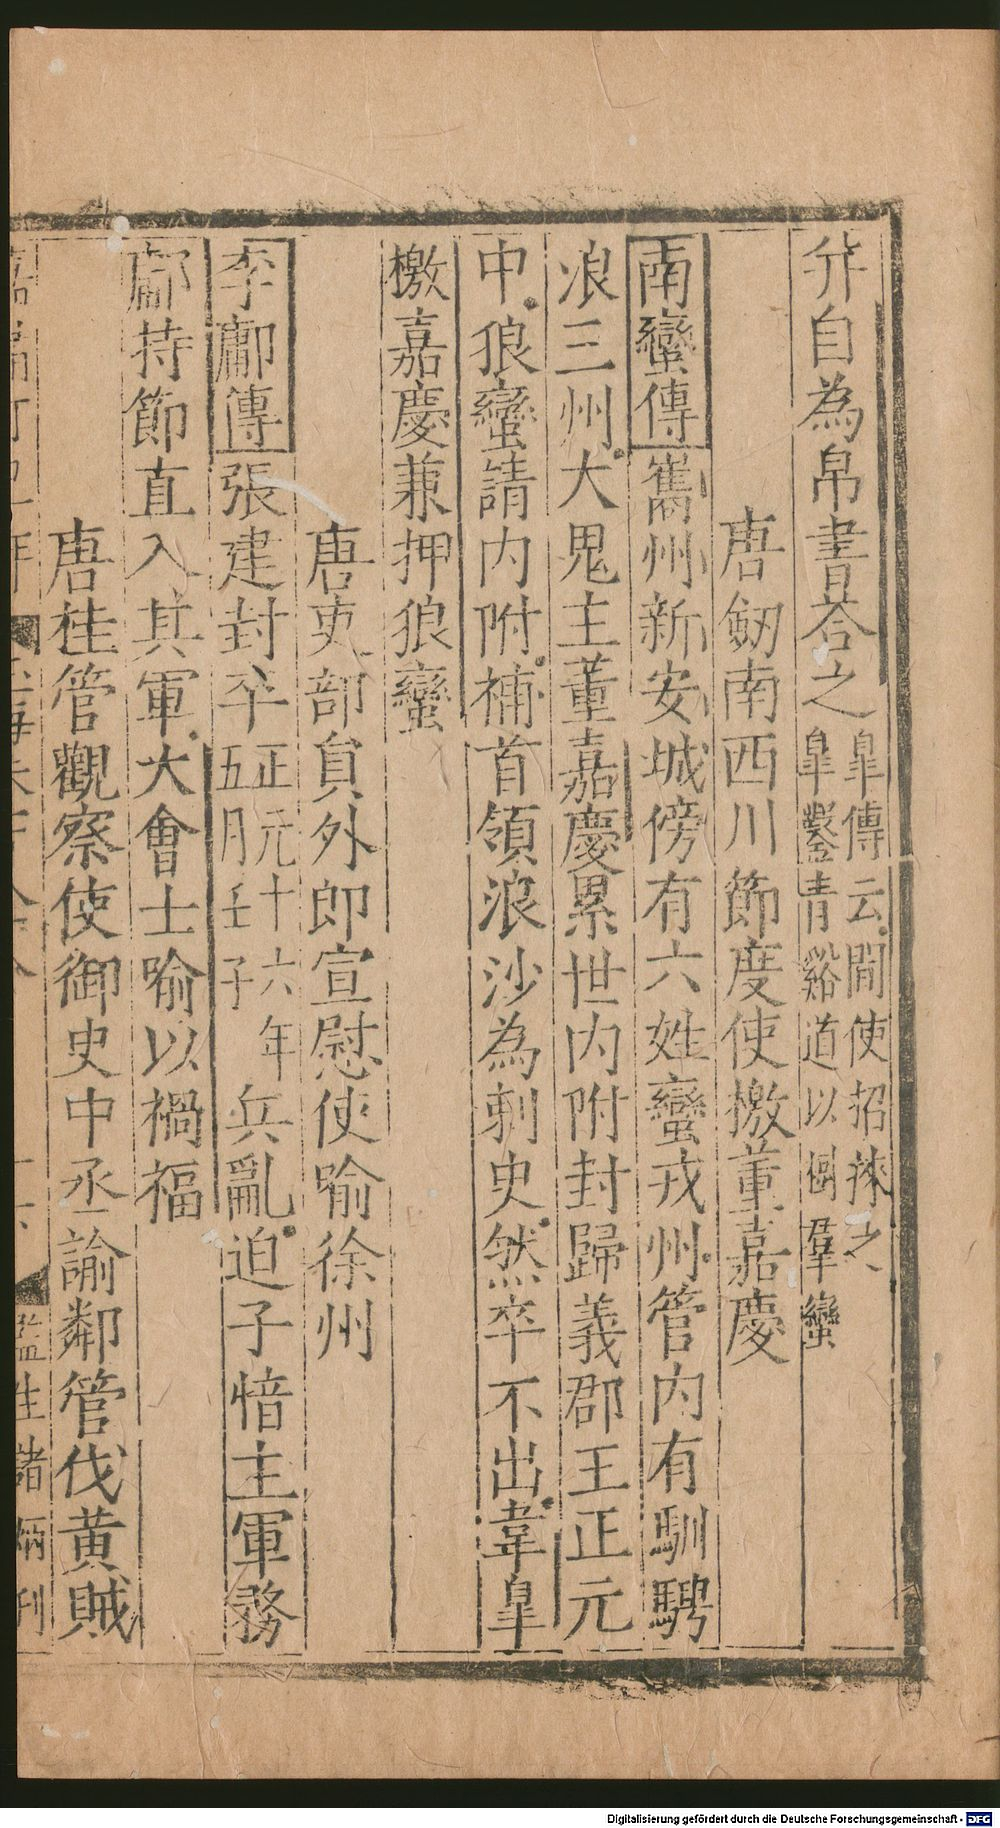 幷自為帛書荅之皐傳云間使招捒之
皐鑿青谿道以倒羣蠻
唐劔南西川節度使檄董嘉慶
南蠻傳嶲州新安城傍有六姓蠻戎州管內有馴騁
浪三州大鬼主董嘉慶累世内附封歸義郡王正元
中狼蠻請内附補首領浪沙為刺史然卒不出韋皐
檄嘉慶兼押狼蠻
唐吏部貟外郎宣慰使喻徐州
李鄘傳張建封卒正元十六年
五月壬子兵亂迫子愔主軍務
鄘持節直入其軍大會士喻以禍福
唐桂管觀察使御史中丞諭鄰管伐黄賊
監生諸炳刊
Digitalisierung gefördert durch die Deutsche Forschungsgemeinschaft - DFG